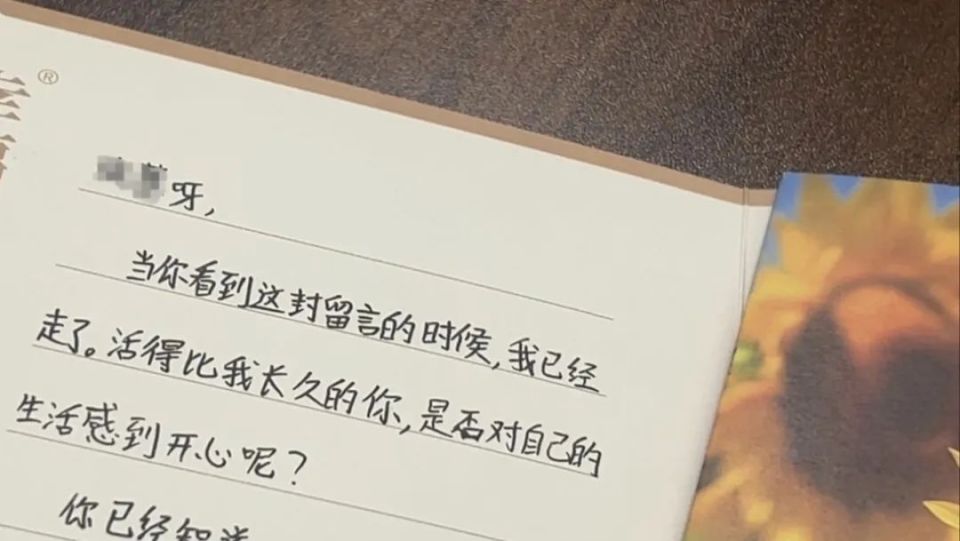 ®
呀,
当你看到这封留言的时候,我已经
走了。活得比我长久的你,是否对自己的
生活感到开心呢?
你已经知道